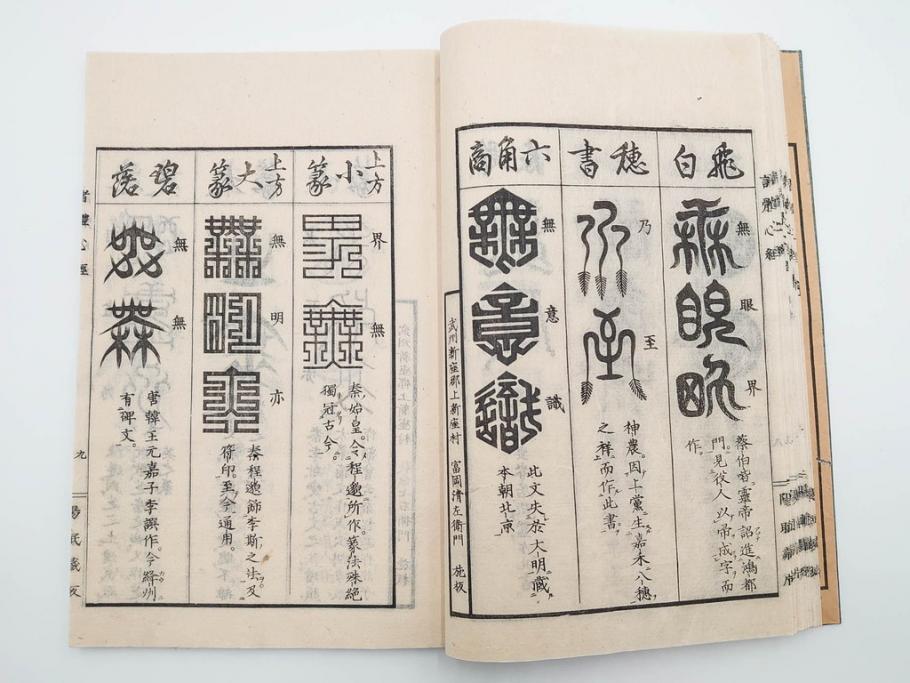 飛白
無
眼
界
蔡伯喈靈帝詔進鴻都
門見役人以帚成字而
作
穗書
乃
至
神農因上黨生嘉禾八穗
之祥而作此書
六角商
無
意
識
此文失大明藏
本朝北京
武州新座郡上新座村 富岡清左衛門 施板
上方小篆
界
無
秦始皇令程邈所作篆法殊絕
獨冠古今。
上方大篆
無
明
亦
秦程邈飾李斯之法又
符印至今通用。
碧落
無
無
唐韓王元嘉子李譔作。今絳州
有碑文。
心經
九
藏板